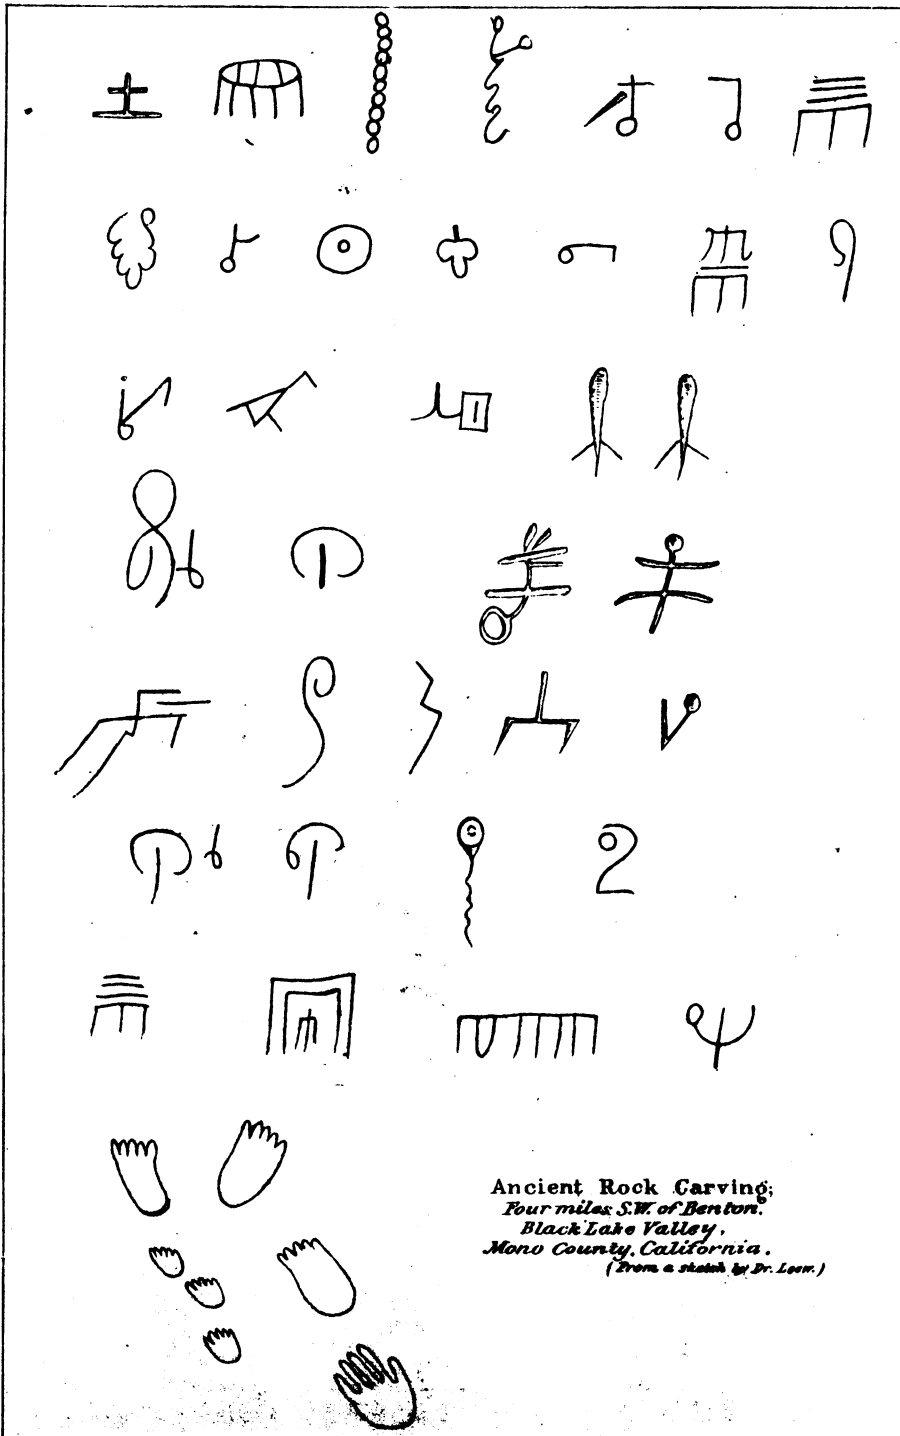 Ancient Rock Carving;
Four miles S.W. of Benton.
Black Lake Valley,
Mono County, California.
(From a sketch by Dr. Loew.)